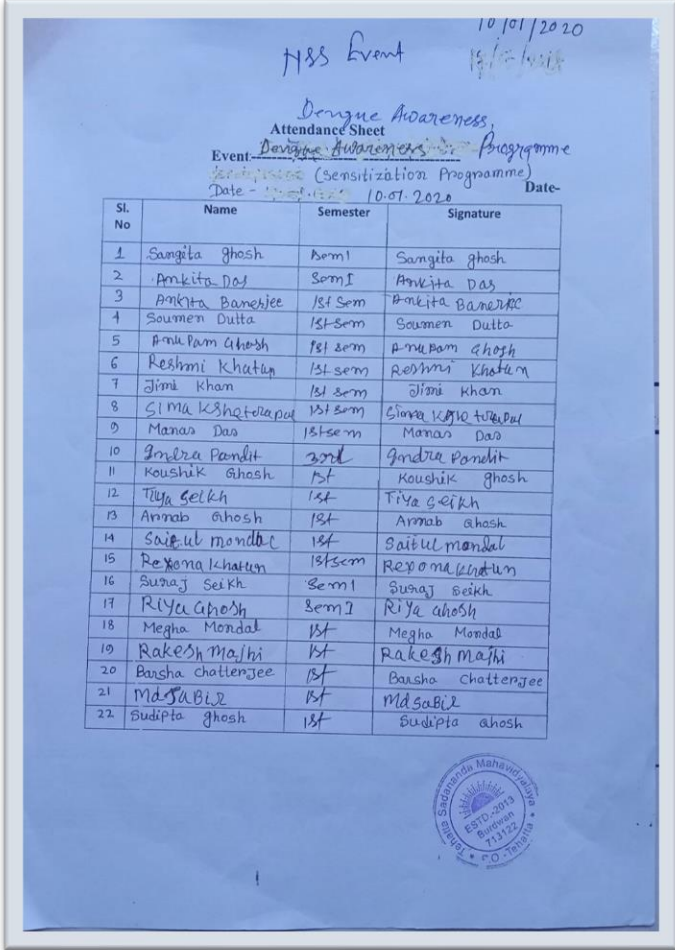 10/01/2020
NSS Event
Dengue Awareness,
Attendance Sheet
Event- Dengue Awareness Programme
(Sensitization Programme)
Date - 10.01.2020 Date-
Sl. No Name Semester Signature
1 Sangita ghosh Sem I Sangita ghosh
2 Ankita Das Sem I Ankita Das
3 Ankita Banerjee 1st Sem Ankita Banerjee
4 Soumen Dutta 1st sem Soumen Dutta
5 Anupam Ghosh 1st sem Anupam Ghosh
6 Reshmi Khatun 1st sem Reshmi Khatun
7 Jimi Khan 1st sem Jimi Khan
8 Sima Kshetrapal 1st sem Sima Kshetrapal
9 Manas Das 1st sem Manas Das
10 Indra Pandit 3rd Indra Pandit
11 Koushik Ghosh 1st Koushik ghosh
12 Tiya Seikh 1st Tiya Seikh
13 Arnab Ghosh 1st Arnab Ghosh
14 Saiful mondal 1st Saiful mondal
15 Rexona Khatun 1st sem Rexona Khatun
16 Suraj Seikh Sem I Suraj Seikh
17 Riya Ghosh Sem I Riya Ghosh
18 Megha Mondal 1st Megha Mondal
19 Rakesh Majhi 1st Rakesh Majhi
20 Barsha Chatterjee 1st Barsha Chatterjee
21 Md SaBiR 1st Md SaBiR
22 Sudipta ghosh 1st Sudipta Ghosh
Tehatta Sadananda Mahavidyalaya
ESTD.-2013
Burdwan
713122
P.O.-Tehatta